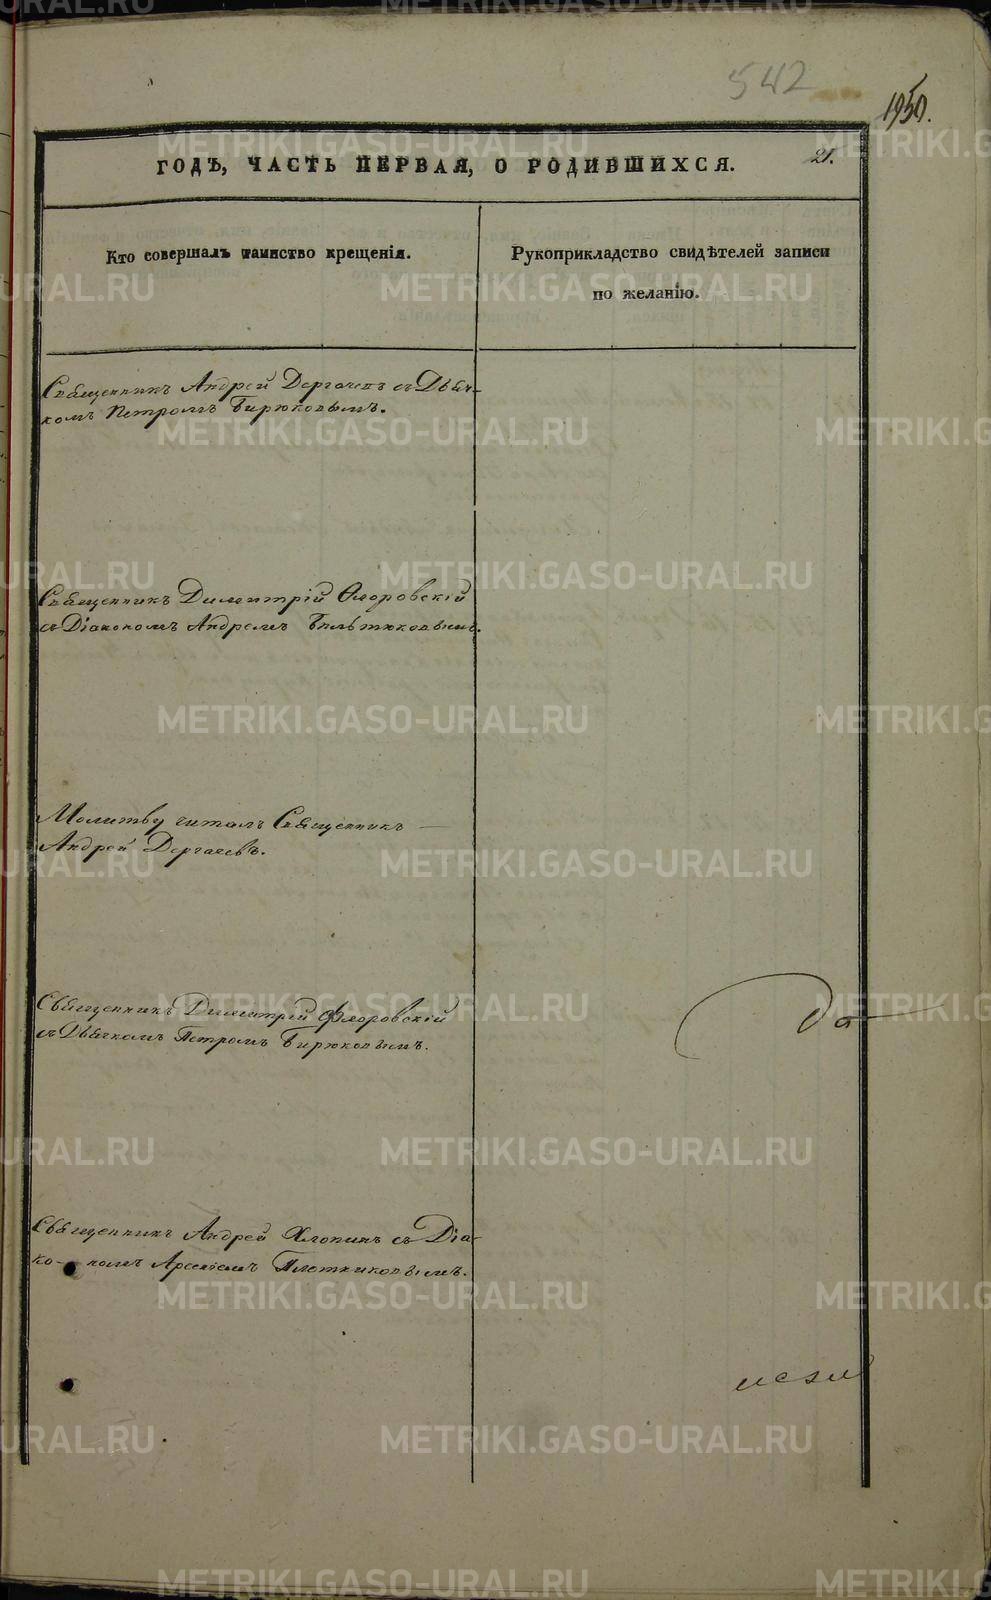 542
1950.
21.
ГОДѢ, ЧАСТЬ ПЕРВАЯ, О РОДИВШИХСЯ.
Кто совершалъ таинство крещенія.
Рукоприкладство свидѣтелей записи
по желанію.
Священникъ Андрей Дергачевъ съ Дьяч-
комъ Петромъ Бирюковымъ.
Священникъ Димитрій Флоровскій
съ Діакономъ Андреемъ Бельтюковымъ.
Молитву читалъ Священникъ —
Андрей Дергачевъ.
Священникъ Димитрій Флоровскій
съ Дьячкомъ Петромъ Бирюковымъ.
да
Священникъ Андрей Хлопинъ съ Діа-
ко- номъ Арсеніемъ Плотниковымъ.
METRIKI.GASO-URAL.RU